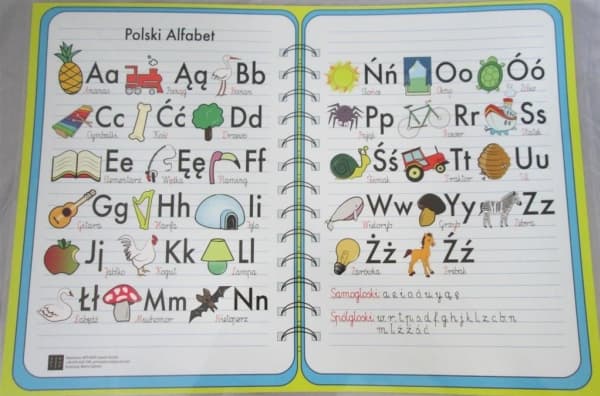 Polski Alfabet
Aa Ąą Bb
Ananas Pociąg Bocian
Cc Ćć Dd
Cymbałki Kość Drzewo
Ee Ęę Ff
Elementarz Wędka Flaming
Gg Hh Ii
Gitara Harfa Iglo
Jj Kk Ll
Jabłko Kogut Lampa
Łł Mm Nn
Łabędź Muchomor Nietoperz
Ńń Oo Óó
Słońce Okno Żółw
Pp Rr Ss
Pająk Rower Statek
Śś Tt Uu
Ślimak Traktor Ul
Ww Yy Zz
Wieloryb Grzyb Zebra
Żż Źź
Żarówka Źrebak
Samogłoski: a e i o ó u y ą ę
Spółgłoski: w r t p s d f g h j k l z c b n
m l ż ź ś ć